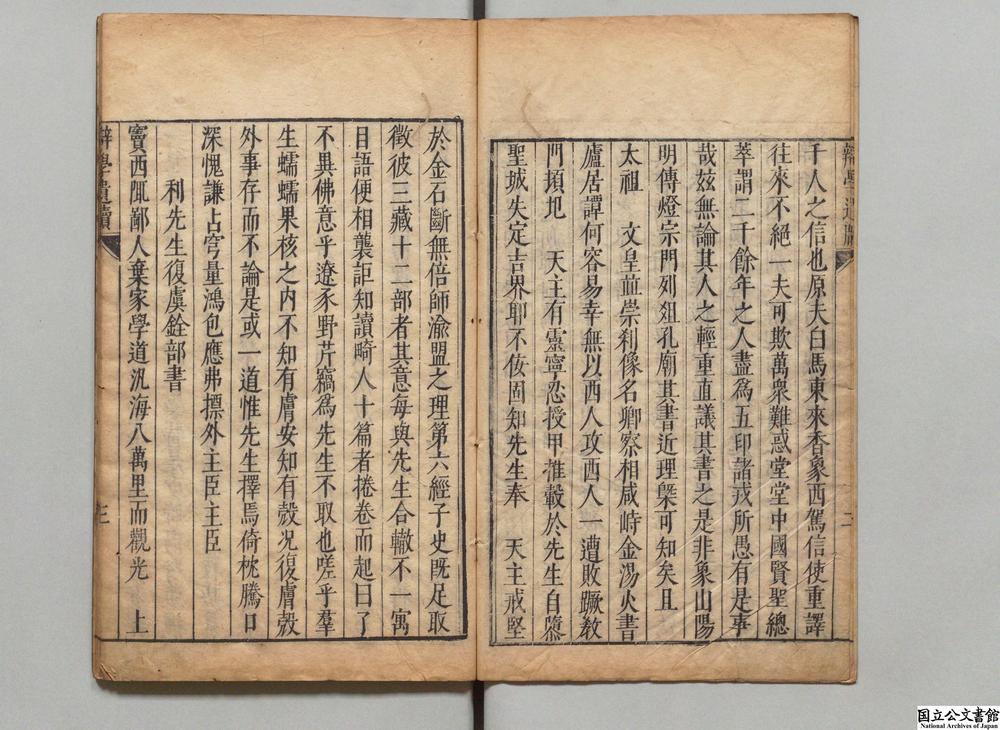 辯學遺牘
二
千人之信也原夫白馬東來香象西駕信使重譯
往來不絕一夫可欺萬衆難惑堂堂中國賢聖總
萃謂二千餘年之人盡爲五印諸戎所愚有是事
哉茲無論其人之輕重直議其書之是非象山陽
明傳燈宗門列俎孔廟其書近理槩可知矣且
太祖 文皇並崇刹像名卿察相咸峙金湯火書
廬居譚何容易幸無以西人攻西人一遭敗蹶教
門頓圯 天主有靈寧忍授甲推轂於先生自隳
聖城失定吉界耶不佞固知先生奉 天主戒堅
於金石斷無倍師渝盟之理第六經子史既足取
徵彼三藏十二部者其意每與先生合轍不一寓
目語便相襲詎知讀畸人十篇者捲卷而起曰了
不異佛意乎遼豕野芹竊爲先生不取也嗟乎羣
生蠕蠕果核之内不知有膚安知有殼况復膚殼
外事存而不論是或一道惟先生擇焉倚枕騰口
深愧謙占穹量鴻包應弗摽外主臣主臣
利先生復虞銓部書
竇西陬鄙人棄家學道汎海八萬里而觀光 上
辯學遺牘
國立公文書館
National Archives of Japan